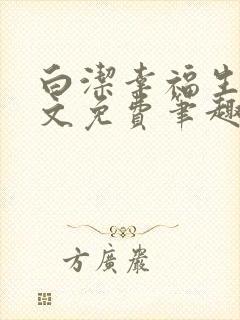 白潔幸福生
文免費筆趣
方廣嚴